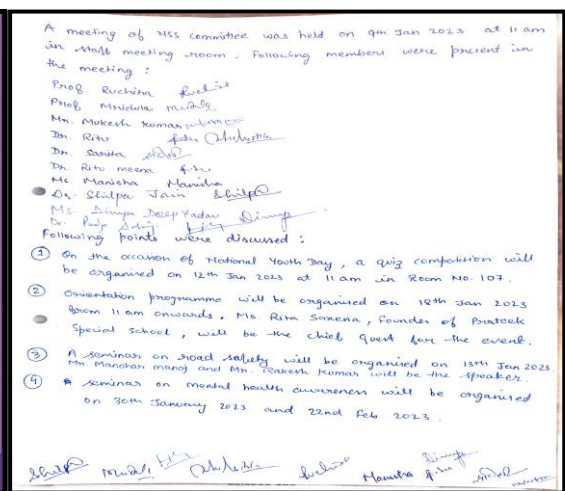 A meeting of NSS committee was held on 9th Jan 2023 at 11 am
in staff meeting room. Following members were present in
the meeting :
Prof Ruchira Ruchira
Prof. Mridula Mridula
Mr. Mukesh Kumar
Dr. Ritu Ritu
Dr. Sarita
Dr. Ritu meena Ritu
Ms Manisha Manisha
Dr. Shilpa Jain Shilpa
Ms. Divya Deep Yadav Divya
Dr.
Following points were discussed :
① On the occasion of National Youth Day, a quiz competition will
be organised on 12th Jan 2023 at 11 am in Room No. 107.
② Orientation programme will be organised on 18th Jan 2023
from 11 am onwards. Ms. Rita Saxena, Founder of Prateek
Special School, will be the chief guest for the event.
③ A seminar on road safety will be organised on 13th Jan 2023.
Mr Manohar manoj and Mr. Rakesh Kumar will be the speaker.
④ A seminar on mental health awareness will be organised
on 30th January 2023 and 22nd Feb 2023.
Shilpa Mridula Ruchira Manisha Divya Ritu